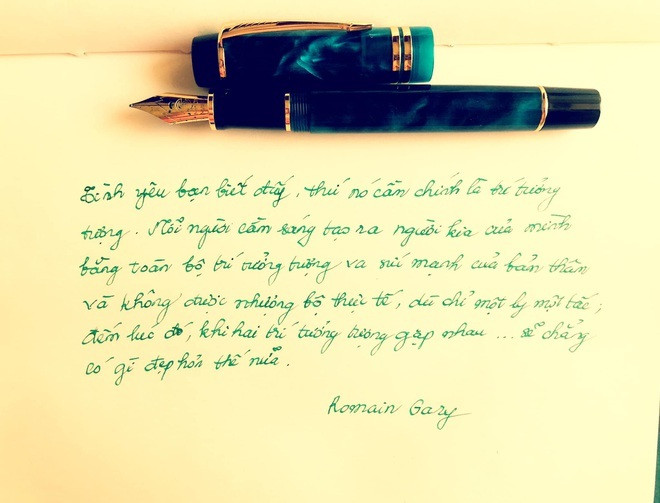 Tình yêu bạn biết đấy, thứ nó cần chính là trí tưởng
tượng. Mỗi người cần sáng tạo ra người kia của mình
bằng toàn bộ trí tưởng tượng và sức mạnh của bản thân
và không được nhượng bộ thực tế, dù chỉ một ly một tấc;
đến lúc đó, khi hai trí tưởng tượng gặp nhau... sẽ chẳng
có gì đẹp hơn thế nữa.
Romain Gary